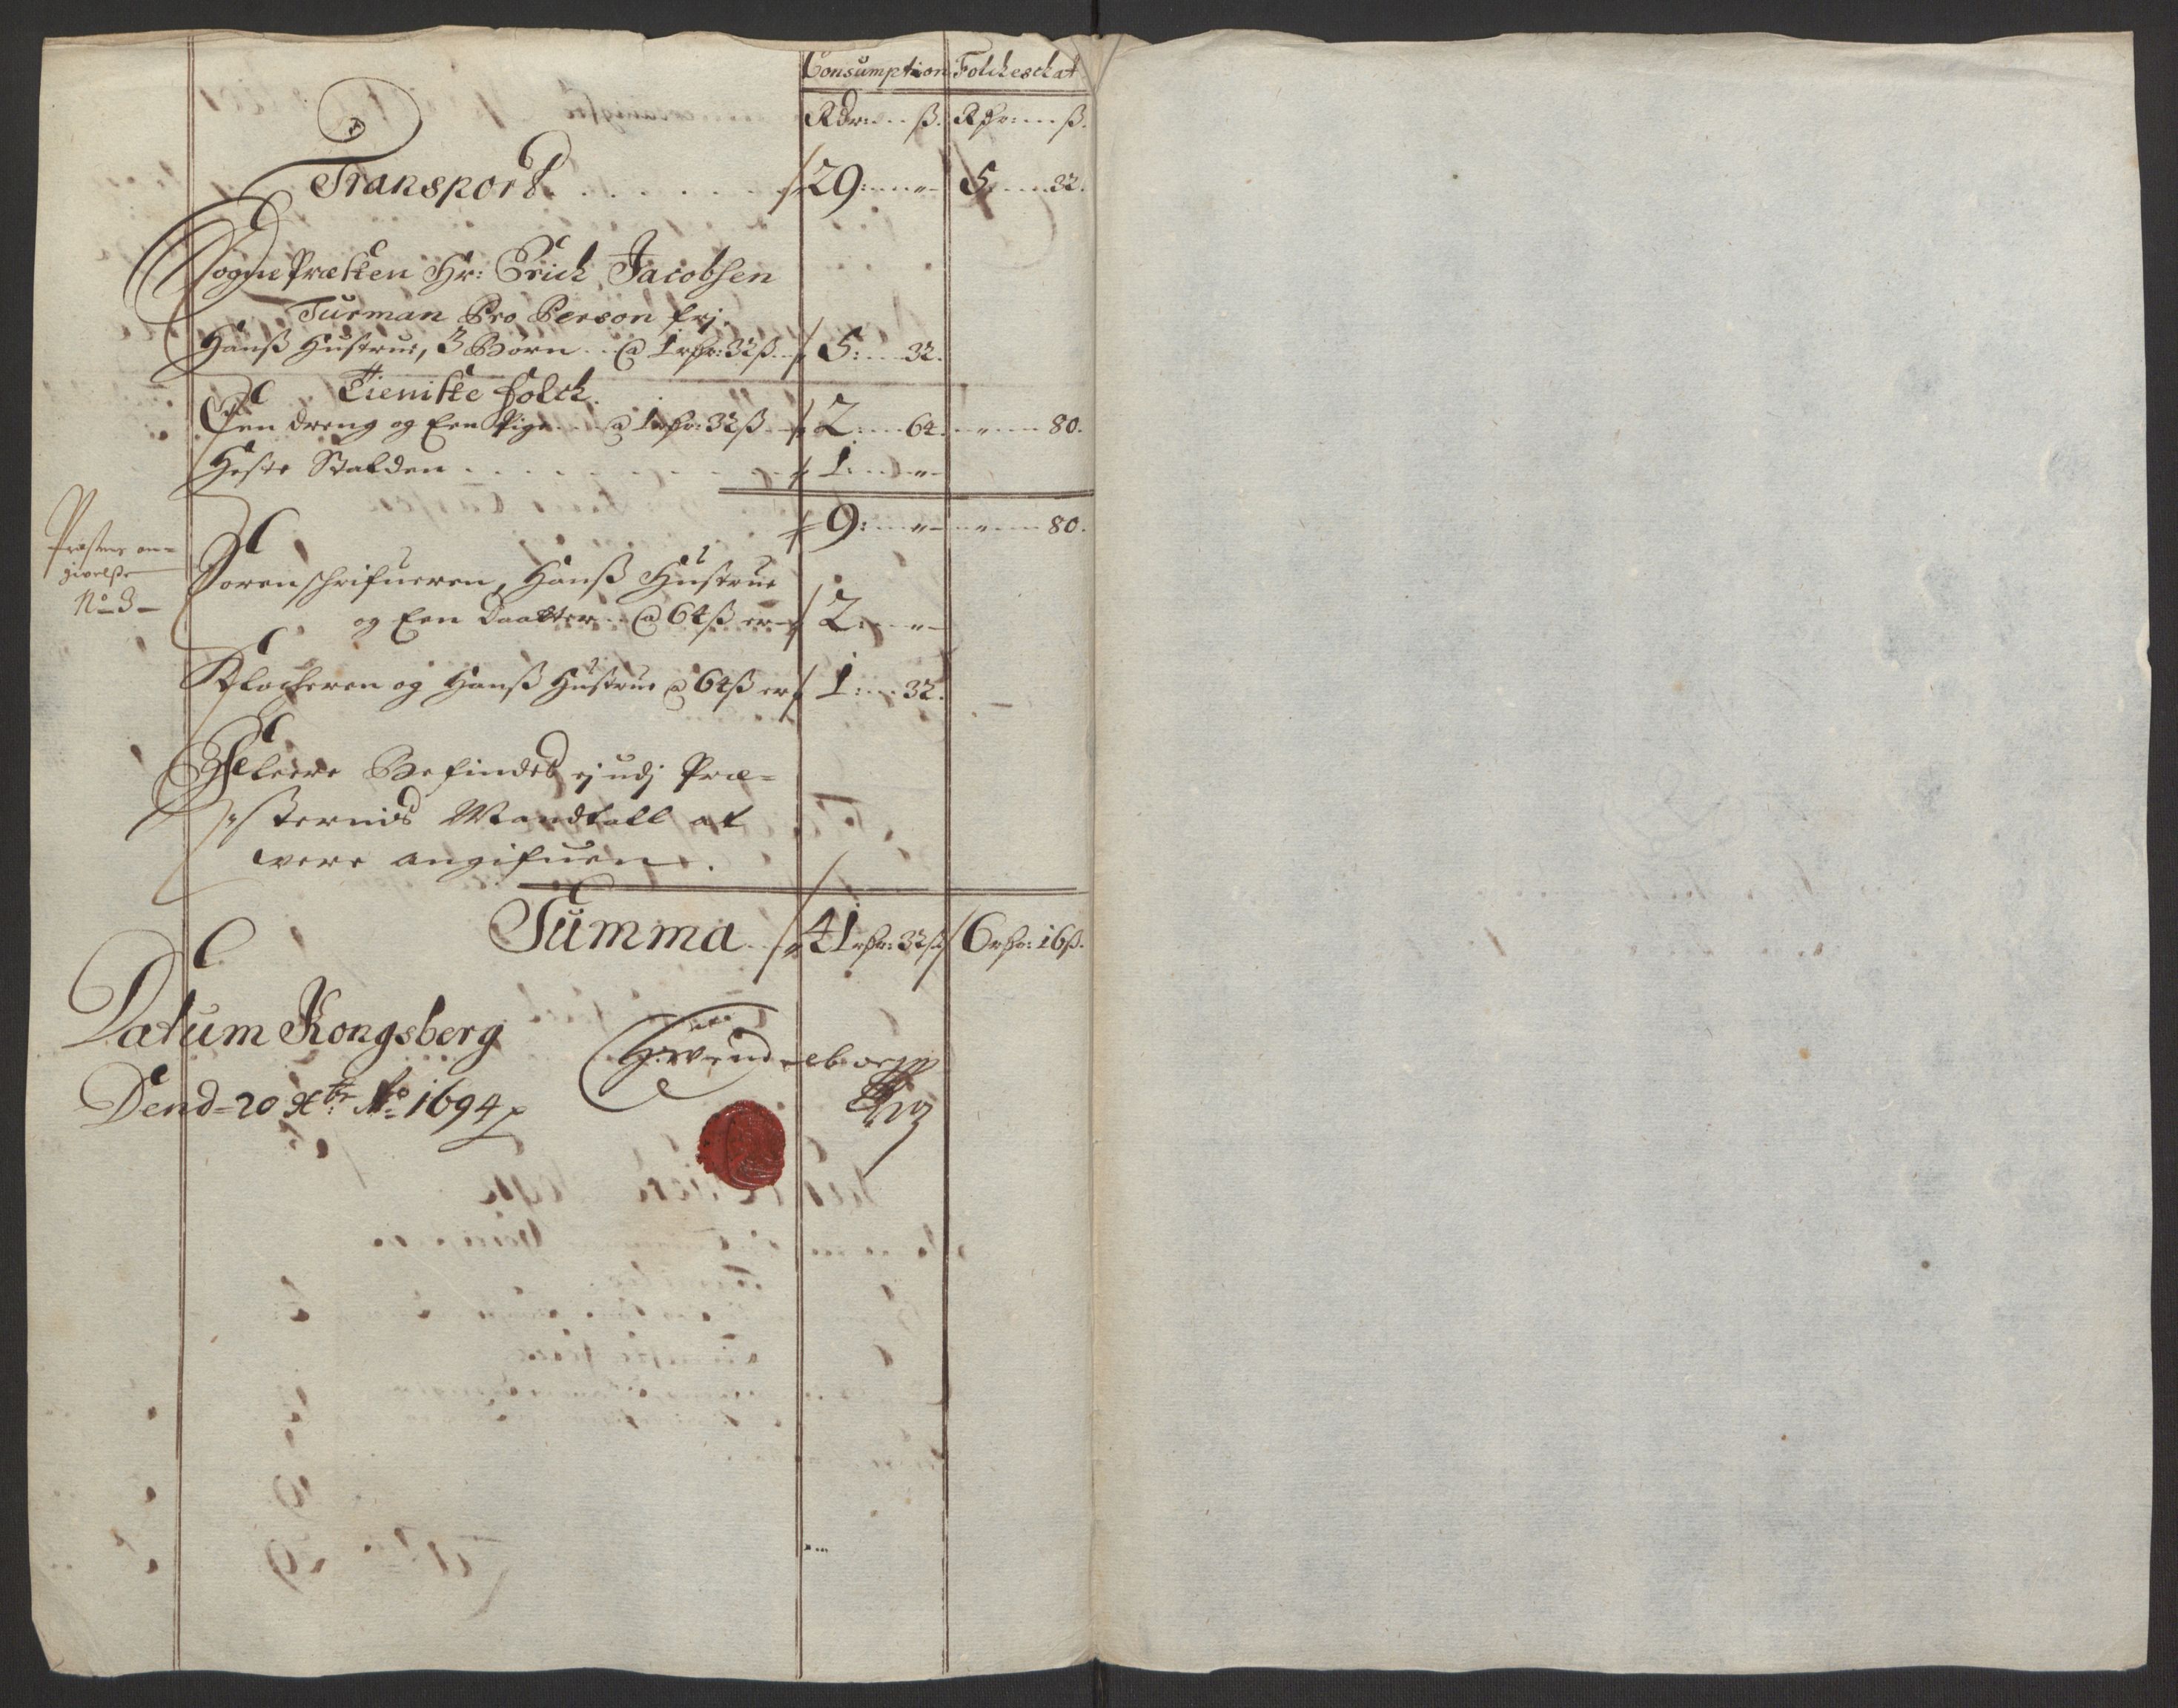 Consumption Folcheschat
Rdr: ß. Rdr: ß.
Transport 29: " 5 32.
Sogne Præsten Hr: Erich Jacobsen
Turman Pro Person frj.
Hanß Hustrue, 3 Børn @ 1 rdr: 32 ß 5: 32.
Tieniste folck.
Een dreng og Een Pige @ 1 rdr: 32 ß 2: 64. " 80.
Heste Stalden 1: "
9: " " 80.
Præstens an-
givelße
No 3
Sorenschrifueren, Hanß Hustrue
og Een Daatter @ 64 ß er 2: "
Klocheren og Hanß Hustrue @ 64 ß er 1: 32.
Fleere Befindes ej udj Præ-
sternis Mandtall at
were angifuen.
Summa 41 rdr: 32 ß 6 rdr: 16 ß.
Datum Kongsberg
Dend 20 Xbr Ao 1694